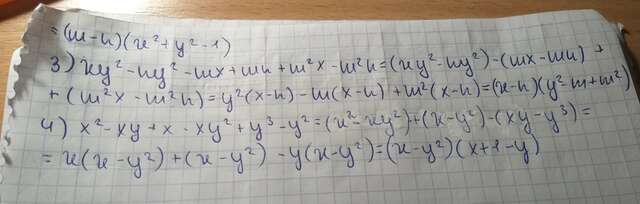 = (m-n)(x²+y²-1)
3) xy²-ny²-mx+mn+m²x-m²n=(xy²-ny²)-(mx-mn)+
+(m²x-m²n)=y²(x-n)-m(x-n)+m²(x-n)=(x-n)(y²-m+m²)
4) x²-xy+x-xy²+y³-y²=(x²-xy²)+(x-y²)-(xy-y³)=
=x(x-y²)+(x-y²)-y(x-y²)=(x-y²)(x+1-y)